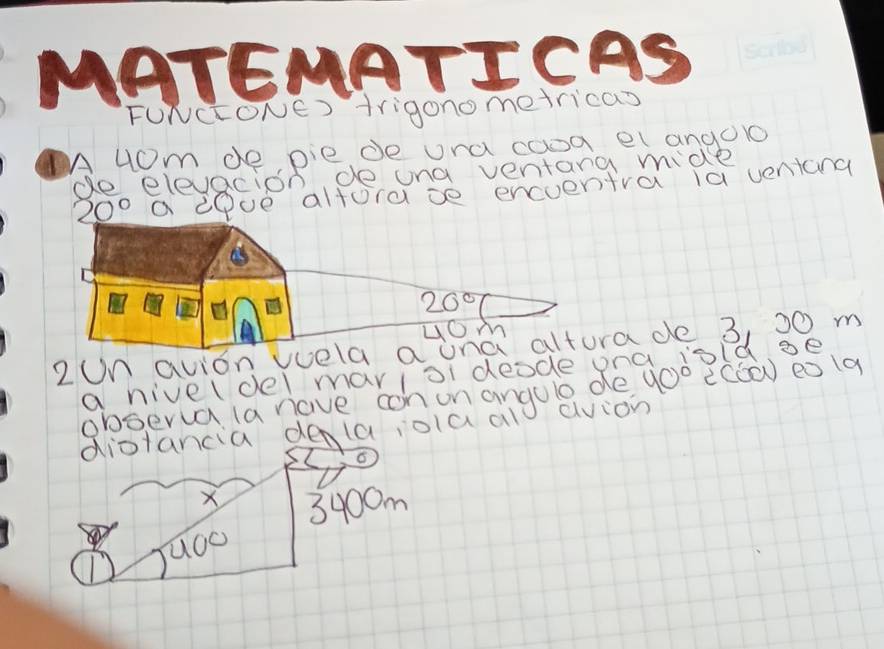 Scribe
MATEMATICAS
FUNCIONES trigonometricas
1 A 40m de pie de una casa el angulo
de elevación de una ventana mide
20° a ¿Que altura se encuentra la ventana
20°
40m
2 Un avión vuela a una altura de 3, 00 m
a nivel del mar, si desde una isla, se
observa la nave con un angulo de 40° ¿Cual es la
distancia de la isla al avion
x
3400m
40°